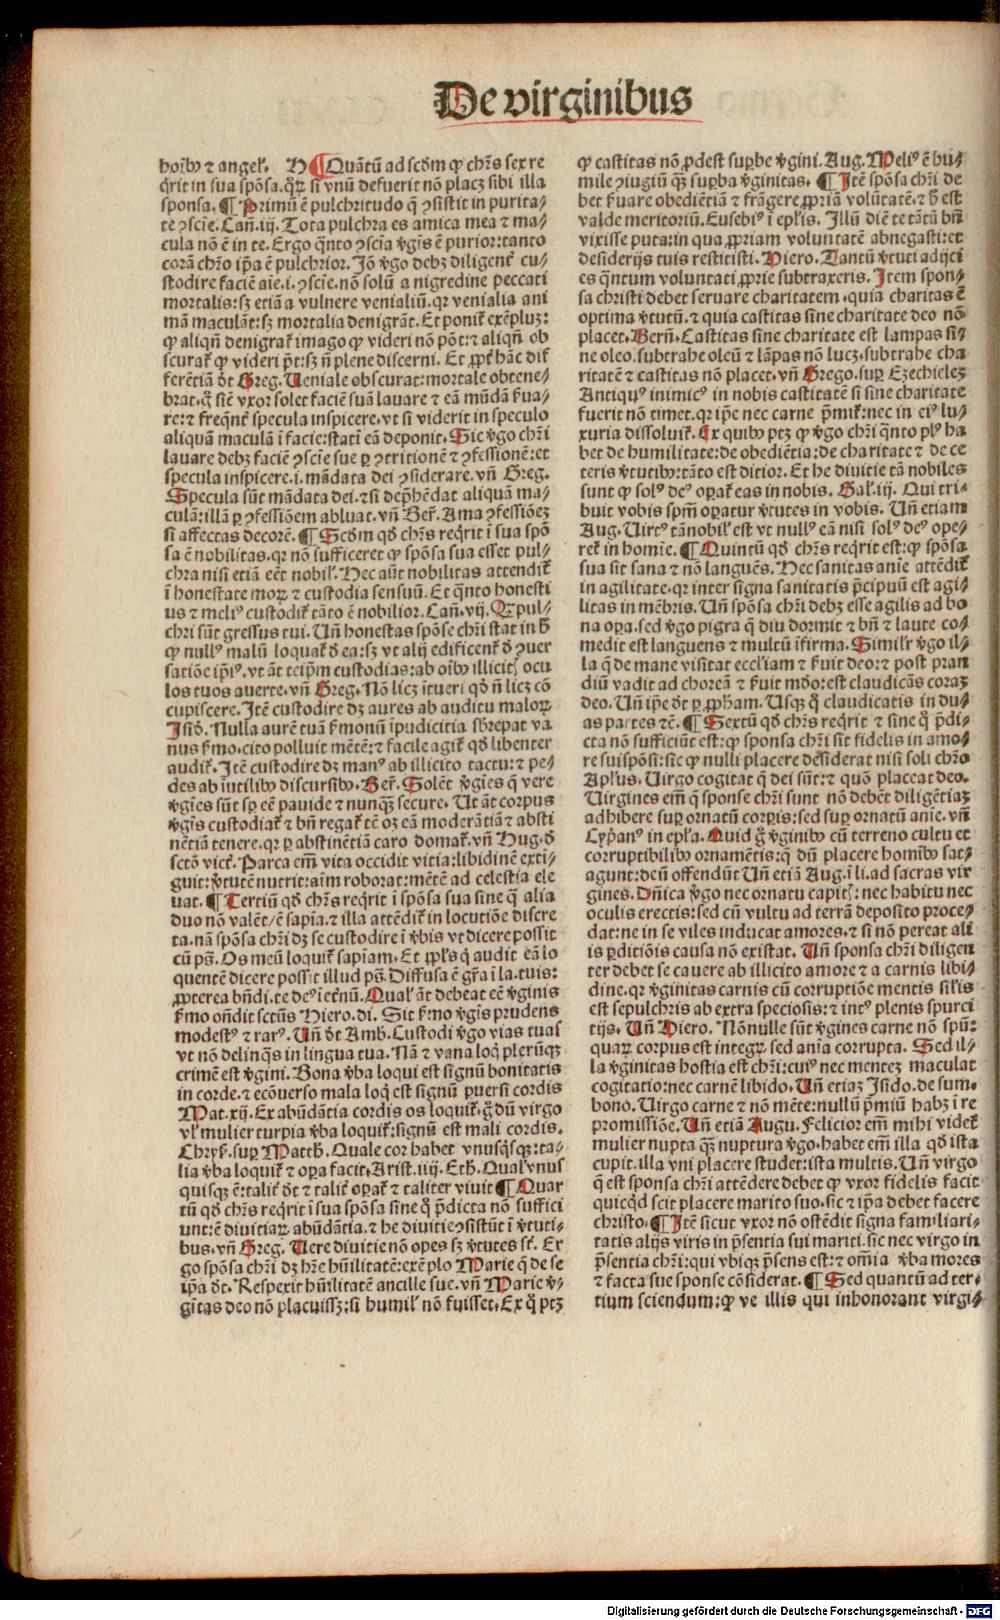 De virginibus
hoĩbꝰ ⁊ angeł. H ¶ Quãtũ ad scðm ꝙ chr̃s sex re
q̃rit in sua spõsa. q̃ꝝ si vnũ defuerit nõ placꝫ sibi illa
sponsa. ¶ Primũ ẽ pulchritudo q̃ ꝯsistit in purita⸗
te ꝯsciẽ. Cañ. iij. Tota pulchra es amica mea ⁊ ma⸗
cula nõ ẽ in te. Ergo q̃nto ꝯscĩa v̓gĩs ẽ purior: tanto
corã chr̃o ip̃a ẽ pulchrior. Jõ v̓go debꝫ diligent̓ cu⸗
stodire faciẽ aĩe. i. ꝯscĩe. nõ solũ a nigredine peccati
mortalis: sꝫ etiã a vulnere venialiũ. qꝛ venialia ani
mã maculãt: sꝫ mortalia denigrãt. Et ponit̓ exẽpluꝫ:
ꝙ aliqñ denigrat̓ imago ꝙ videri nõ põt: ⁊ aliqñ ob
scurat̓ ꝙ videri p̃t: sꝫ ñ plene discerni. Et ꝓpt̓ hãc dif
ferẽtiã ðt Greg. Veniale obscurat: mortale obtene⸗
brat. q̃ sic̃ vxor solet faciẽ suã lauare ⁊ eã mũdã ẜua⸗
re: ⁊ freq̃nt̓ specula inspicere. vt si viderit in speculo
aliquã maculã ĩ facie: statĩ eã deponit. Sic v̓go chr̃i
lauare debꝫ faciẽ ꝯscĩe sue ꝑ ꝯtritionẽ ⁊ ꝯfessionẽ: et
specula inspicere. i. mãdata dei ꝯsiderare. vñ Greg.
Specula sũt mãdata dei. ⁊ si dep̃hẽdat aliquã ma⸗
culã: illã ꝑ ꝯfessiõem abluat. vñ Ber̃. Ama ꝯfessiõeꝫ
si affectas decorẽ. ¶ Scðm qð chr̃s req̃rit ĩ sua spõ
sa ẽ nobilitas. qꝛ nõ sufficeret ꝙ sponsa sua esset pul⸗
chra nisi etiã eẽt nobił. Hec aũt nobilitas attendit̓
ĩ honestate moꝝ ⁊ custodia sensuũ. Et q̃nto honesti
us ⁊ meliꝰ custodit̓ tãto ẽ nobilior. Cañ. vij. Q̃ pul⸗
chri sũt gressus tui. Uñ honestas spõse chr̃i stat in h̓
ꝙ nullꝰ malũ loquat̓ ð ea: sꝫ vt alij edificent̓ ð ꝯuer
satiõe ip̃iꝰ. vt ãt teip̃m custodias: ab oĩbꝰ illicit̓ ocu
los tuos auerte. vñ Greg. Nõ licꝫ ĩtueri qð ñ licꝫ cõ
cupiscere. Jtẽ custodire dꝫ aures ab auditu maloꝝ
Jsið. Nulla aurẽ tuã ẜmonũ ĩpudicitia sb̓repat va
nus ẜmo. cito polluit mẽtẽ: ⁊ facile agit̓ qð libenter
audit̓. Jtẽ custodire dꝫ manꝰ ab illicito tactu: ⁊ pe⸗
des ab ĩutilibꝰ discursibꝰ. Ber̃. Solẽt v̓gĩes q̃ vere
v̓gĩes sũt sp̃ eẽ pauide ⁊ nunq̃ꝫ secure. Ut ãt corpus
v̓gĩs custodiat̓ ⁊ bñ regat̓ tẽ oꝫ eã moderãtiã ⁊ absti
nẽtiã tenere. qꝛ ꝑ abstinẽtiã caro domat̓. vñ Hug. ð
sctõ vict̓. Parca em̃ vita occidit vitia: libidinẽ exti⸗
guit: v̓tutẽ nutrit: aĩm roborat: mẽtẽ ad celestia ele
uat. ¶ Tertiũ qð chr̃s req̃rit ĩ spõsa sua sine q̃ alia
duo nõ valẽt/ ẽ sapĩa. ⁊ illa attẽdit̓ in locutiõe discre
ta. nã spõsa chr̃i dꝫ se custodire ĩ v̓bis vt dicere possit
cũ ps̃. Os meũ loquit̓ sapiam. Et ꝓpl̓s q̃ audit eã lo
quentẽ dicere possit illud ps̃. Diffusa ẽ gr̃a ĩ la. tuis:
ꝓpterea bñdi. te deꝰ ĩ et̓nũ. Qual̓ ãt debeat eẽ v̓ginis
ẜmo oñdit sctũs Hiero. di. Sit ẜmo v̓gĩs prudens
modestꝰ ⁊ rarꝰ. Uñ ðt Amb. Custodi v̓go vias tuas
vt nõ delinq̃s in lingua tua. Nã ⁊ vana loq̃ plerũqꝫ
crimẽ est v̓gini. Bona v̓ba loqui est signũ bonitatis
in corde. ⁊ ecõuerso mala loq̃ est signũ ꝑuersi cordis
Mat. xij. Ex abũdãtia cordis os loquit̓. q̃ dũ virgo
vł mulier turpia v̓ba loquit̓: signũ est mali cordis.
Chryẜ. sup̱ Matth. Quale cor habet vnusq̃sqꝫ: ta⸗
lia v̓ba loquit̓ ⁊ oꝑa facit. Arist. iiij. Eth. Qual̓ vnus
quisqꝫ ẽ: talit̓ ðt ⁊ talit̓ oꝑat̓ ⁊ taliter viuit ¶ Quar
tũ qð chr̃s req̃rit ĩ sua spõsa sine q̃ p̃dicta nõ suffici
unt: ẽ diuitiaꝝ abũdãtia. ⁊ he diuitie ꝯsistũt ĩ v̓tuti⸗
bus. vñ Greg. Uere diuitie nõ opes sꝫ v̓tutes sẽ. Er
go spõsa chr̃i dꝫ hr̃e hũilitatẽ: exẽplo Marie q̃ de se
ip̃a ðt. Respexit hũilitatẽ ancille sue. vñ Marie v̓⸗
gĩtas deo nõ placuissꝫ: si humił nõ fuisset. Ex q̃ ptꝫ
ꝙ castitas nõ ꝓdest suꝑbe v̓gini. Aug. Meliꝰ ẽ hu⸗
mile ꝯiugiũ q̃ꝫ suꝑba v̓ginitas. ¶ Jtẽ spõsa chr̃i de
bet ẜuare obediẽtiã ⁊ frãgere ꝓpriã volũtatẽ. ⁊ h̓ est
valde meritoriũ. Eusebiꝰ ĩ epl̓is. Illũ diẽ te tãtũ bñ
vixisse puta: in qua ꝓpriam voluntatẽ abnegasti: et
desiderijs tuis restitisti. Hiero. Tantũ v̓tuti adijci
es q̃ntum voluntati ꝓprie subtraxeris. Jtem spon⸗
sa christi debet seruare charitatem. quia charitas ẽ
optima v̓tutũ. ⁊ quia castitas sine charitate deo nõ
placet. Berñ. Castitas sine charitate est lampas si⸗
ne oleo. subtrahe oleũ ⁊ lãpas nõ lucꝫ. subtrahe cha
ritatẽ ⁊ castitas nõ placet. vñ Grego. sup̱ Ezechielez
Antiquꝰ inimicꝰ in nobis castitatẽ si sine charitate
fuerit nõ timet. qꝛ ip̃e nec carne p̃mit̓: nec in eiꝰ lu⸗
xuria dissoluit̓. Ex quibꝰ ptꝫ ꝙ v̓go chr̃i q̃nto plꝰ ha
bet de humilitate: de obediẽtia: de charitate ⁊ de ce
teris v̓tutibꝰ: tãto est ditior. Et he diuitie tã nobiles
sunt ꝙ solꝰ deꝰ oꝑat̓ eas in nobis. Gał. iij. Qui tri⸗
buit vobis spm̃ oꝑatur v̓tutes in vobis. Uñ etiam
Aug. Virtꝰ tã nobił est vt nullꝰ eã nisi solꝰ deꝰ ope⸗
ret̓ in homĩe. ¶ Quintũ qð chr̃s req̃rit est: ꝙ spõsa
sua sit sana ⁊ nõ languẽs. Hec sanitas anĩe attẽdit̓
in agilitate. qꝛ inter signa sanitatis p̃cipuũ est agi⸗
litas in mẽbris. Uñ spõsa chr̃i debꝫ esse agilis ad bo
na oꝑa. sed v̓go pigra q̃ diu dormit ⁊ bñ ⁊ laute co⸗
medit est languens ⁊ multũ ĩfirma. Similr̃ v̓go il⸗
la q̃ de mane visitat eccl̓iam ⁊ ẜuit deo: ⁊ post pran
diũ vadit ad choreã ⁊ ẜuit mũdo: est claudicãs coraꝫ
deo. Uñ ip̃e ðt ꝑ ꝓph̓am. Usqꝫ q̃ claudicatis in du⸗
as partes ⁊c̃. ¶ Sextũ qð chr̃s req̃rit ⁊ sine q̃ p̃di⸗
cta nõ sufficiũt est: ꝙ sponsa chr̃i sit fidelis in amo⸗
re sui spõsi: sic̃ ꝙ nulli placere desiderat nisi soli chr̃o
Apłus. Virgo cogitat q̃ dei sũt: ⁊ quõ placeat deo.
Uirgines em̃ q̃ sponse chr̃i sunt nõ debẽt diligẽtiaꝫ
adhibere suꝑ ornatũ corꝑis: sed suꝑ ornatũ anĩe. vñ
Cyp̃anꝰ in epl̓a. Quid q̃ v̓ginibꝰ cũ terreno cultu et
corruptibilibꝰ ornamẽtis: q̃ dũ placere homĩbꝰ sat⸗
agunt: deũ offendũt Uñ etiã Aug. ĩ li. ad sacras vir
gines. Dñica v̓go nec ornatu capit̓: nec habitu nec
oculis erectis: sed cũ vultu ad terrã deposito proce⸗
dat: ne in se viles inducat amores. ⁊ si nõ pereat ali
is ꝑditiõis causa nõ existat. Uñ sponsa chr̃i diligen
ter debet se cauere ab illicito amore ⁊ a carnis libi⸗
dine. qꝛ v̓ginitas carnis cũ corruptiõe mentis sĩlis
est sepulchris ab extra speciosis: ⁊ intꝰ plenis spurci
tijs. Uñ Hiero. Nõnulle sũt v̓gines carne nõ spũ:
quaꝝ corpus est integꝝ. sed anĩa corrupta. Sed il⸗
la v̓ginitas hostia est chr̃i: cuiꝰ nec menteꝫ maculat
cogitatio: nec carnẽ libido. Uñ etiaꝫ Jsido. de sum.
bono. Uirgo carne ⁊ nõ mẽte: nullũ p̃miũ habꝫ ĩ re
promissiõe. Uñ etiã Augu. Felicior em̃ mihi videt̓
mulier nupta q̃ꝫ nuptura v̓go. habet em̃ illa qð ista
cupit. illa vni placere studet: ista multis. Uñ virgo
q̃ est sponsa chr̃i attẽdere debet ꝙ vxor fidelis facit
quicq̃d scit placere marito suo. sic ⁊ ip̃a debet facere
christo. ¶ Jtẽ sicut vxor nõ ostẽdit signa familiari⸗
tatis alijs viris in p̃sentia sui mariti. sic nec virgo in
p̃sentia chr̃i: qui vbiqꝫ p̃sens est: ⁊ om̃ia v̓ba mores
⁊ facta sue sponse cõsiderat. ¶ Sed quantũ ad ter⸗
tium sciendum: ꝙ ve illis qui inhonorant virgi⸗
Digitalisierung gefördert durch die Deutsche Forschungsgemeinschaft - DFG